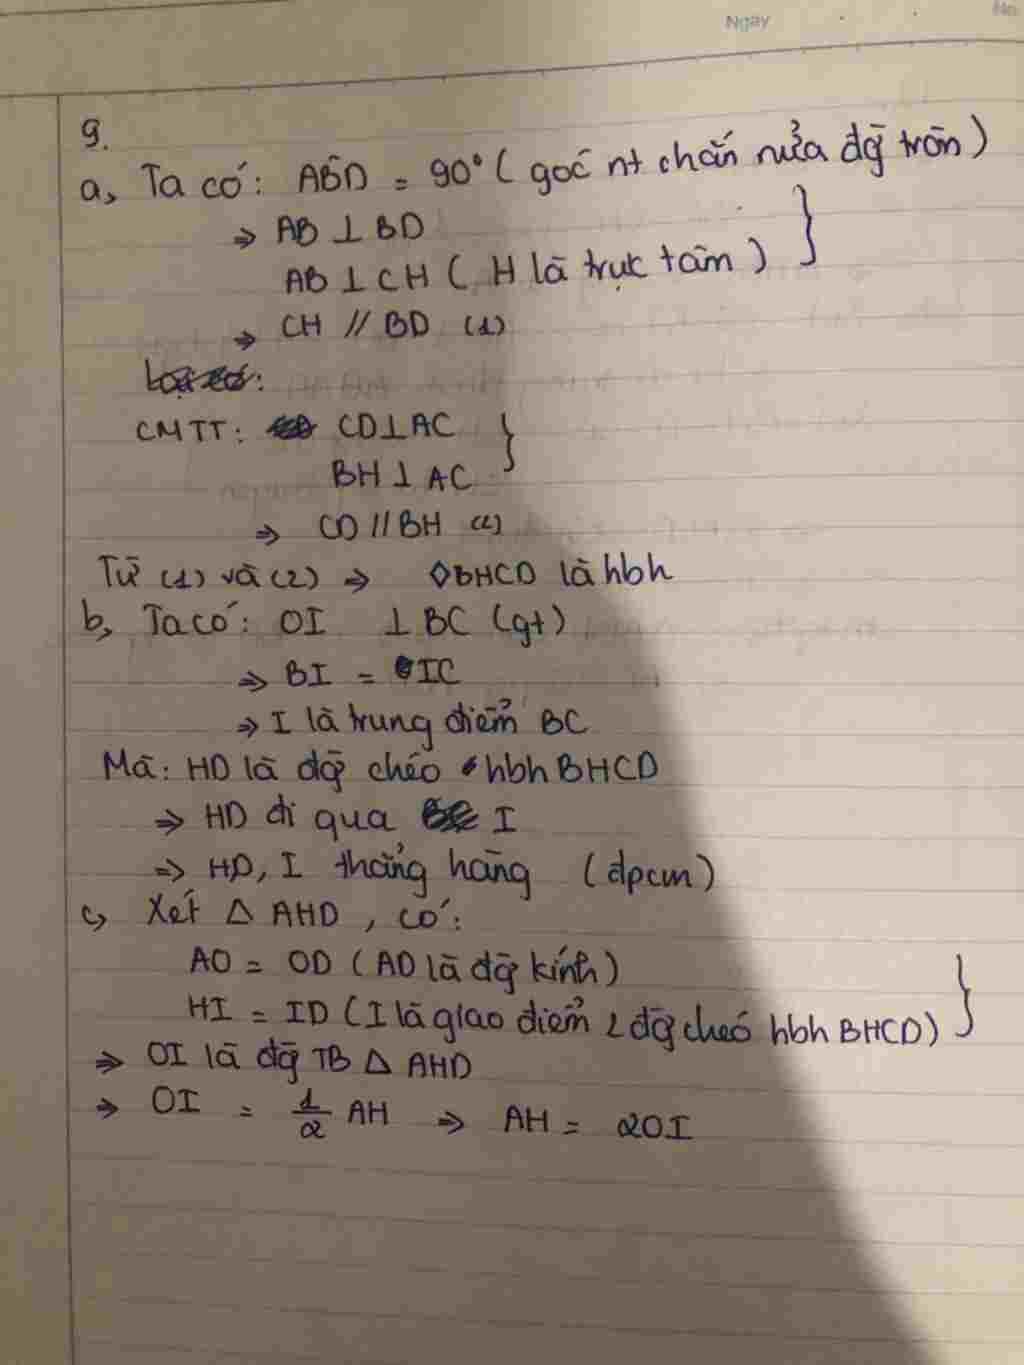 Ngay
No
9.
a, Ta có: AB̂D = 90° ( góc nt chắn nửa đg̀ tròn )
⇒ AB ⊥ BD
AB ⊥ CH ( H là trực tâm ) }
⇒ CH // BD (1)
CMTT: CD ⊥ AC }
BH ⊥ AC
⇒ CD // BH (2)
Từ (1) và (2) ⇒ ◇BHCD là hbh
b, Ta có: OI ⊥ BC (gt)
⇒ BI = IC
⇒ I là trung điểm BC
Mà: HD là đg̀ chéo hbh BHCD
⇒ HD đi qua I
⇒ HD, I thẳng hàng (đpcm)
c, Xét △ AHD, có:
AO = OD ( AD là đg̀ kính )
HI = ID ( I là giao điểm 2 đg̀ chéo hbh BHCD) }
⇒ OI là đg̀ TB △ AHD
⇒ OI = 1/2 AH ⇒ AH = 2OI